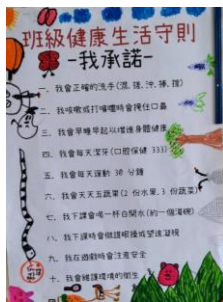 班級健康生活守則
-我承諾-
一、我會正確的洗手(濕、搓、沖、捧、擦)
二、我咳嗽或打噴嚏時會掩住口鼻
三、我會早睡早起以增進身體健康
四、我會每天潔牙(口腔保健 333)
五、我會每天運動 30 分鐘
六、我會天天五蔬果(2 份水果,3 份蔬菜)
七、我下課會喝一杯白開水(約一個湯碗)
八、我下課時會做護眼操或望遠凝視
九、我在遊戲時會注意安全
十、我會維護環境的衛生